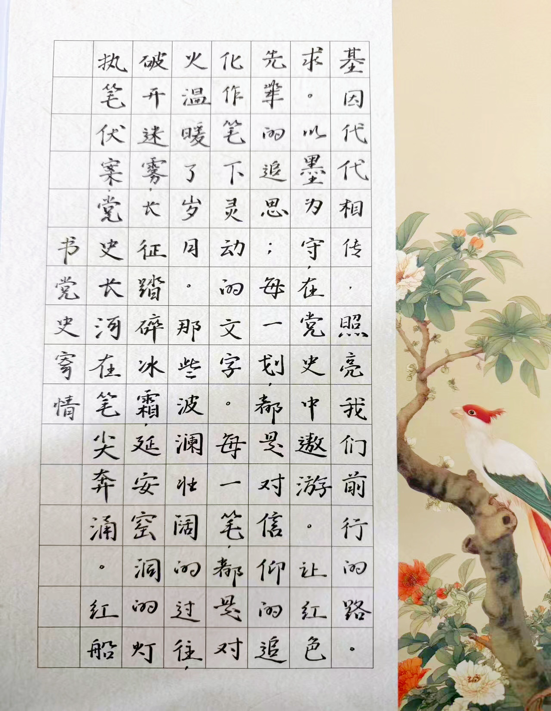 书党史寄情
执笔伏案,党史长河在笔尖奔涌。红船
破开迷雾,长征踏碎冰霜,延安窑洞的灯
火温暖了岁月。那些波澜壮阔的过往,
化作笔下灵动的文字。每一笔,都是对
先辈的追思;每一划,都是对信仰的追
求。以墨为守,在党史中遨游。让红色
基因代代相传,照亮我们前行的路。